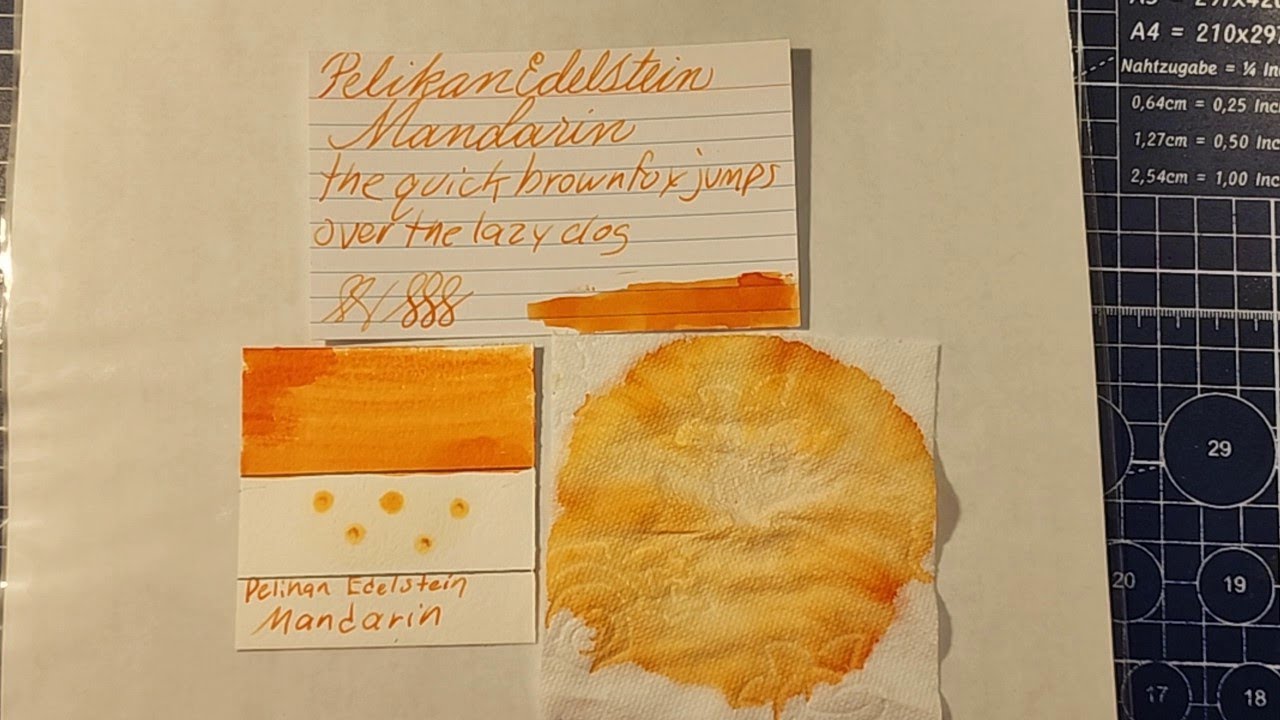 Pelikan Edelstein
Mandarin
the quick brown fox jumps
over the lazy dog
Pelinan Edelstein
Mandarin
A4 = 210x297
Nahtzugabe = ¼ Inc
0,64cm = 0,25 Inc
1,27cm = 0,50 Inc
2,54cm = 1,00 Inc
29
20
19
17
18